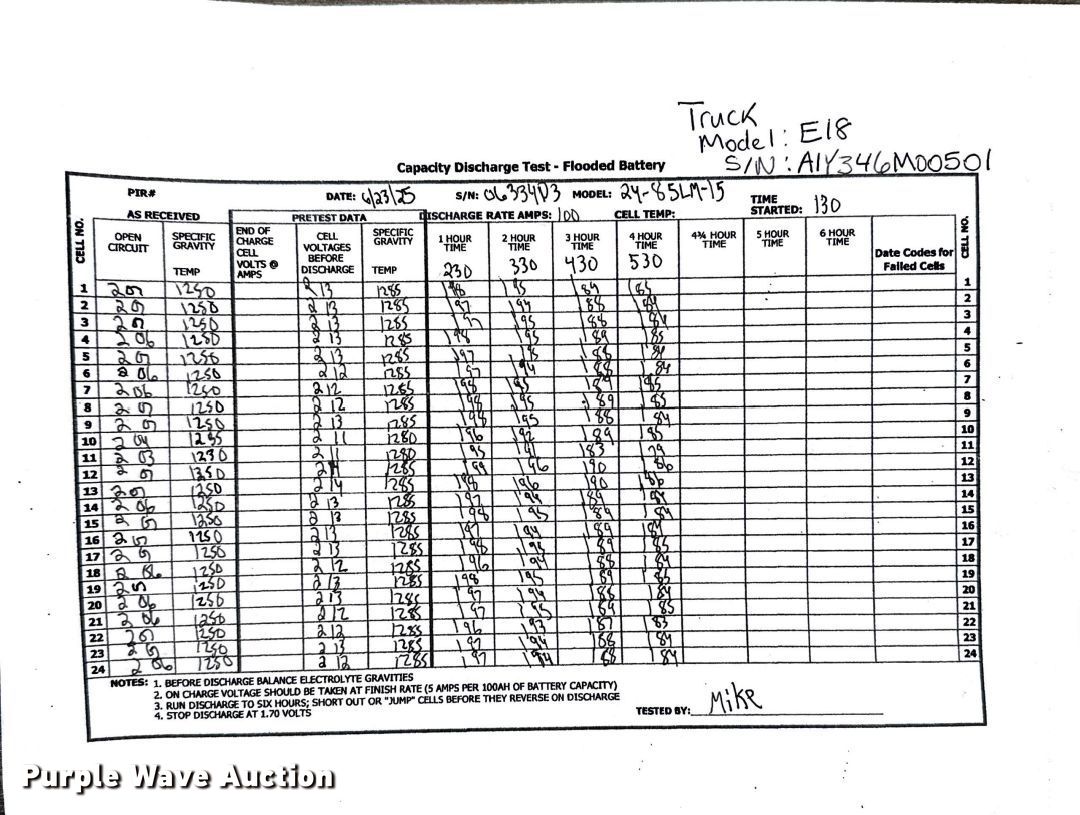 Truck
Model: E18
S/N: A1Y346M00501
Capacity Discharge Test - Flooded Battery
PIR# DATE: 6/23/25 S/N: MODEL: 24-85LM-15 TIME STARTED: 130
AS RECEIVED PRETEST DATA DISCHARGE RATE AMPS: 100 CELL TEMP:
CELL NO. OPEN CIRCUIT SPECIFIC GRAVITY TEMP END OF CHARGE CELL VOLTS @ AMPS CELL VOLTAGES BEFORE DISCHARGE SPECIFIC GRAVITY TEMP 1 HOUR TIME 2 HOUR TIME 3 HOUR TIME 4 HOUR TIME 4¾ HOUR TIME 5 HOUR TIME 6 HOUR TIME Date Codes for Failed Cells CELL NO.
230 330 430 530
1 207 1250 2 13 1285 198 195 189 185 1
2 207 1250 2 13 1285 197 194 188 184 2
3 207 1250 2 13 1285 197 195 188 184 3
4 206 1250 2 13 1285 198 195 189 185 4
5 207 1250 2 13 1285 197 195 188 184 5
6 206 1250 2 12 1285 197 194 188 184 6
7 206 1250 2 12 1285 198 195 189 185 7
8 207 1250 2 12 1285 198 195 189 185 8
9 207 1250 2 13 1285 198 195 188 184 9
10 204 1235 2 11 1280 196 192 189 185 10
11 203 1230 2 11 1280 195 191 183 179 11
12 207 1250 2 14 1285 199 196 190 186 12
13 207 1250 2 14 1285 198 196 190 186 13
14 206 1250 2 13 1285 197 194 189 184 14
15 207 1250 2 13 1285 198 195 189 184 15
16 207 1250 2 13 1285 197 194 189 184 16
17 207 1250 2 13 1285 198 195 189 185 17
18 206 1250 2 12 1285 196 194 188 184 18
19 207 1250 2 13 1285 198 195 189 185 19
20 206 1250 2 13 1285 197 194 188 184 20
21 206 1250 2 12 1285 197 195 189 185 21
22 207 1250 2 12 1285 196 193 187 183 22
23 207 1250 2 13 1285 197 194 188 184 23
24 206 1250 2 12 1285 197 194 188 184 24
NOTES: 1. BEFORE DISCHARGE BALANCE ELECTROLYTE GRAVITIES
2. ON CHARGE VOLTAGE SHOULD BE TAKEN AT FINISH RATE (5 AMPS PER 100AH OF BATTERY CAPACITY)
3. RUN DISCHARGE TO SIX HOURS; SHORT OUT OR "JUMP" CELLS BEFORE THEY REVERSE ON DISCHARGE
4. STOP DISCHARGE AT 1.70 VOLTS
TESTED BY: Mike
Purple Wave Auction